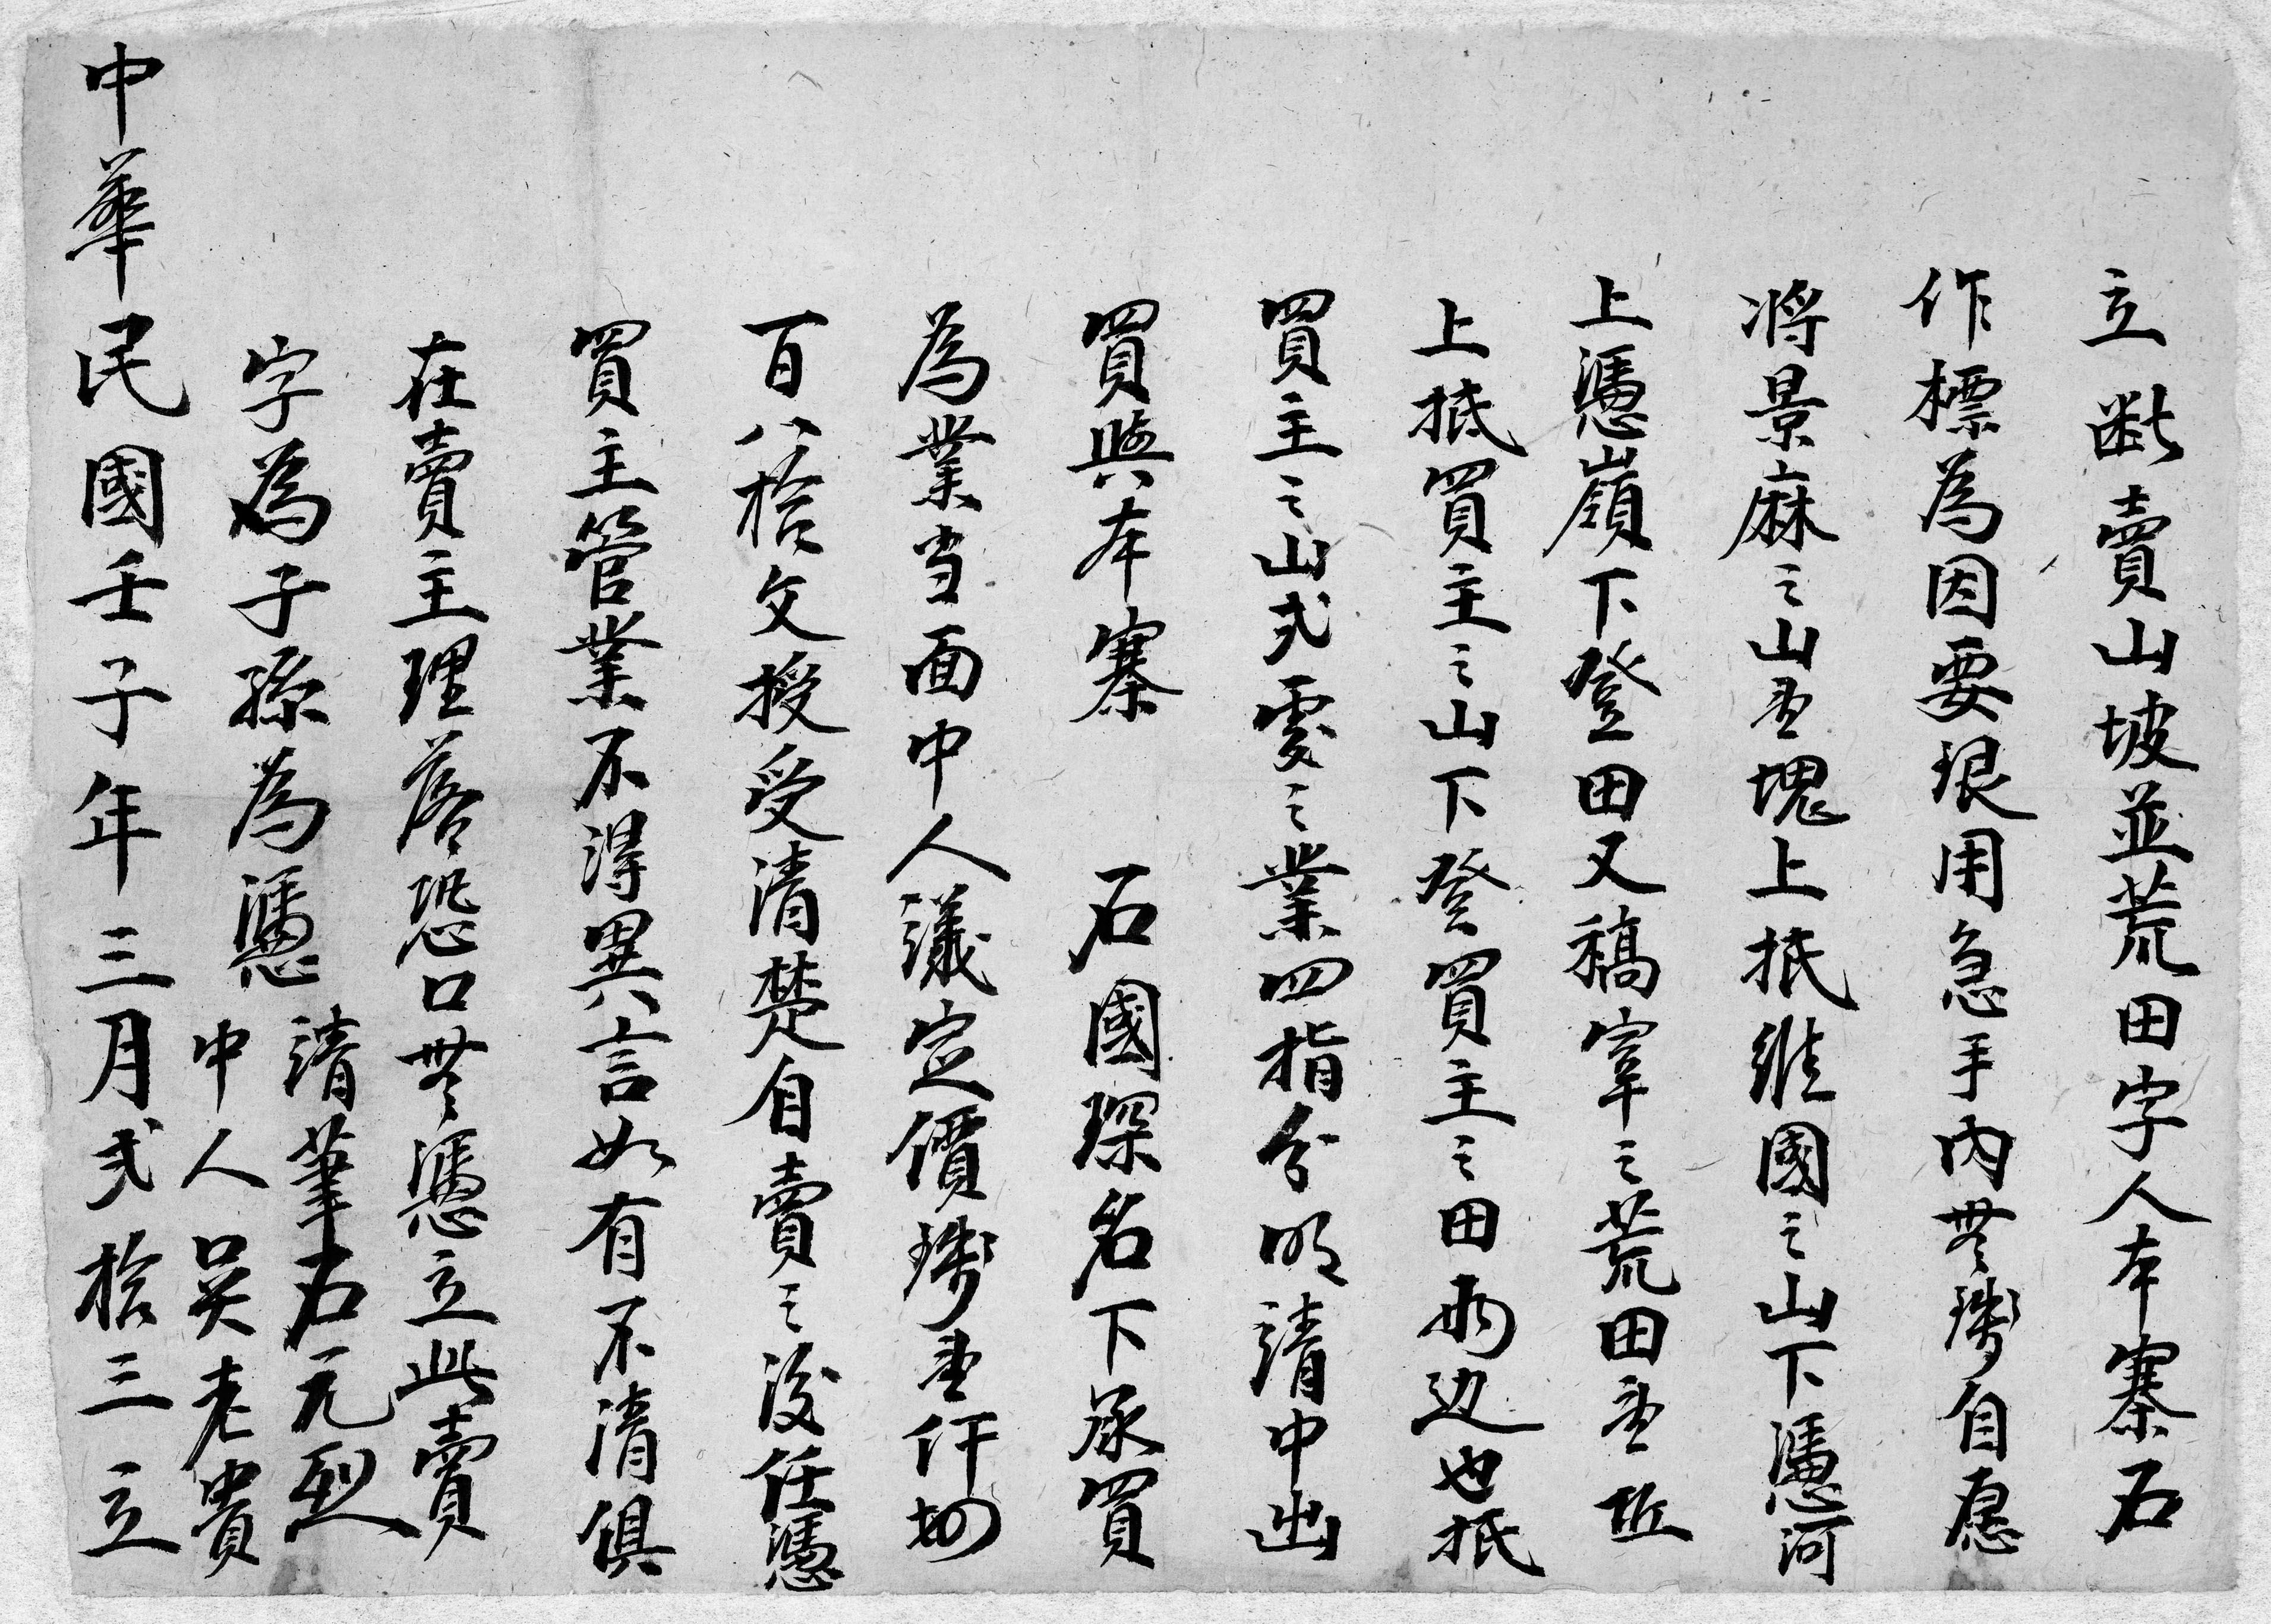 立断賣山坡並荒田字人本寨石
作標為因要艮用急手内無錢自愿
將景麻之山壹塊上抵維國之山下憑河
上憑嶺下登田又稿宰之荒田壹坵
上抵買主之山下登買主之田兩边也抵
買主之山弍處之業四指分明請中出
買與本寨 石國琛名下承買
為業当面中人議定價錢壹仟捌
百八拾文授受清楚自賣之後任憑
買主管業不得異言如有不清俱
在賣主理落恐口無憑立此賣
字為子孫為憑
請筆石元烈
中人吳老貴
中華民國壬子年三月弍拾三立